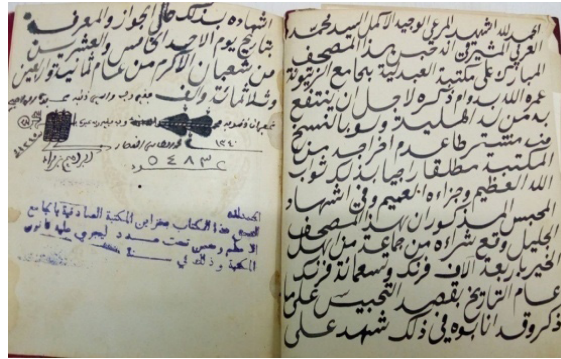 الحمد لله أشهد المرعي الوجيه الأكمل السيد محمد
العربي المثيرتي انه حبس هذا المصحف
المبارك على مكتبة العبدلية بجامع الزيتونة
عمره الله بدوام ذكره لاجل ان ينتفع
به من له اهلية ولو بالنسخ
منه مشترطا عدم اخراجه من
المكتبة مطلقا راجيا بذلك ثواب
الله العظيم وجزاءه العميم وفي اشهاد
المحبس المذكور ان هذا المصحف
الجليل وقع شراءه من جماعة من اهل
الخير باربعة آلاف فرنك وتسعمائة فرنك
عام التاريخ بقصد التحبيس على ما
ذكر وقد انابوه في ذلك شهد على
اشهاده بذلك حالي الجواز والمعرفة
بتاريخ يوم الاحد الخامس والعشرين
من شعبان الاكرم من عام ثمانية واربعين
وثلاثمائة والف
٥٤٨٣
الحمد لله
هذا الكتاب بخزاين المكتبة الصادقية بالجامع
الاعظم وضمن تحت عدد ليجري عليه قانون
المكتبة وذلك في